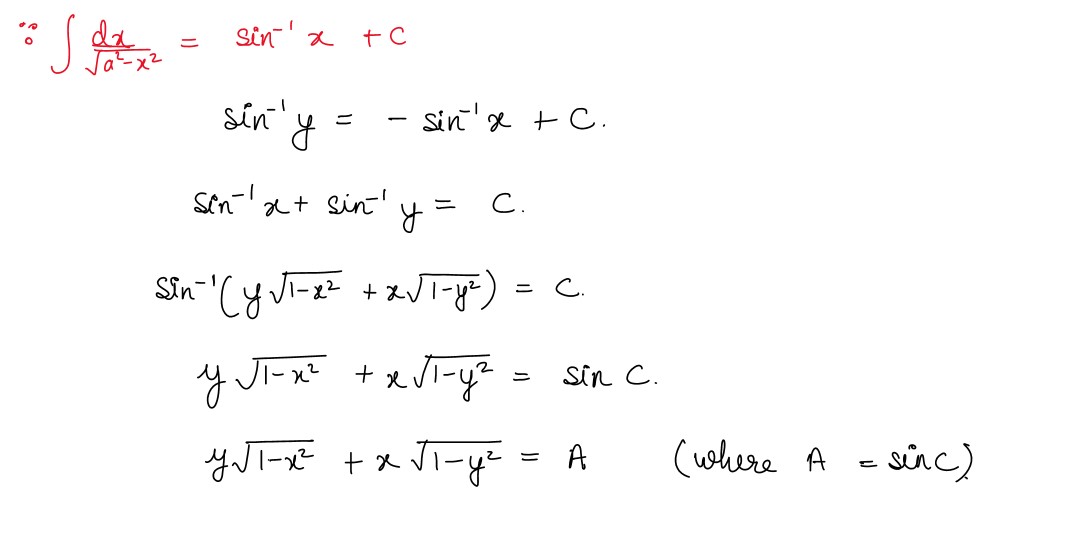 ∵ ∫ dx/√(a²-x²) = sin⁻¹ x + C
sin⁻¹ y = - sin⁻¹ x + C.
sin⁻¹ x + sin⁻¹ y = C.
sin⁻¹(y√(1-x²) + x√(1-y²)) = C.
y√(1-x²) + x√(1-y²) = sin C.
y√(1-x²) + x√(1-y²) = A (where A = sinC)